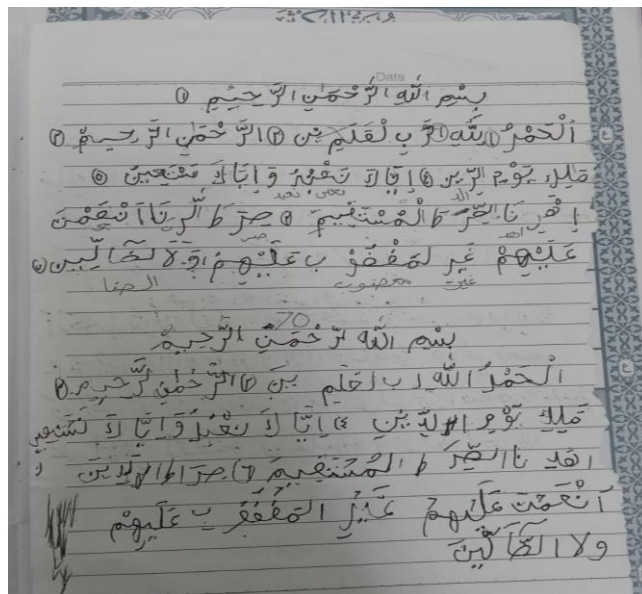 Date
بِسْمِ اللهِ الرَّحْمٰنِ الرَّحِيْمِ ١
اَلْحَمْدُ لِلّٰهِ رَبِ لْعَلَمِيْنَ ٢ الرَّحْمٰنِ الرَّحِيمْ ٣
مَلِكِ يَوْمِ الدِّيْنِ ٤ اِيَّاكَ نَعْبُدُ وَ اِيَّاكَ نَسْتَعِيْنُ ٥
اِهْدِ نَا الصِّرَ طَ الْمُسْتَقِيْمَ ٦ صِرَ طَ الَّذِ يْنَ اَنْعَمْتَ
عَلَيْهِمْ غَيْرِ لمَغْضُوْ بِ عَلَيْهِمْ وَ لَا لضَّا لِّيْن ٧
غير مغضوب الضا
70
بِسْمِ اللهِ الرَّحْمٰنِ الرَّحِيمْ
الْحَمْدُ اللهِ رب العلم ينَ ٢ الرَّحْمٰنِ لرَّحِيْمِ ٣
مَلِكِ يَوْمِ الدِّيْنِ ٤ اِيَّا كَ نَعْبُدُ وَ اِيَّا كَ نَسْتَعِيْن
اهد نا الصِّرَ ط المُسْتَقِيْمَ ٦ صِرَا ط الَّذِيْنَ
اَنْعَمْتَ عَلَيْهِمْ غَيْرِ المَغْضُوْ بِ عَلَيْهِمْ
ولا الضَّآلِّيْنَ